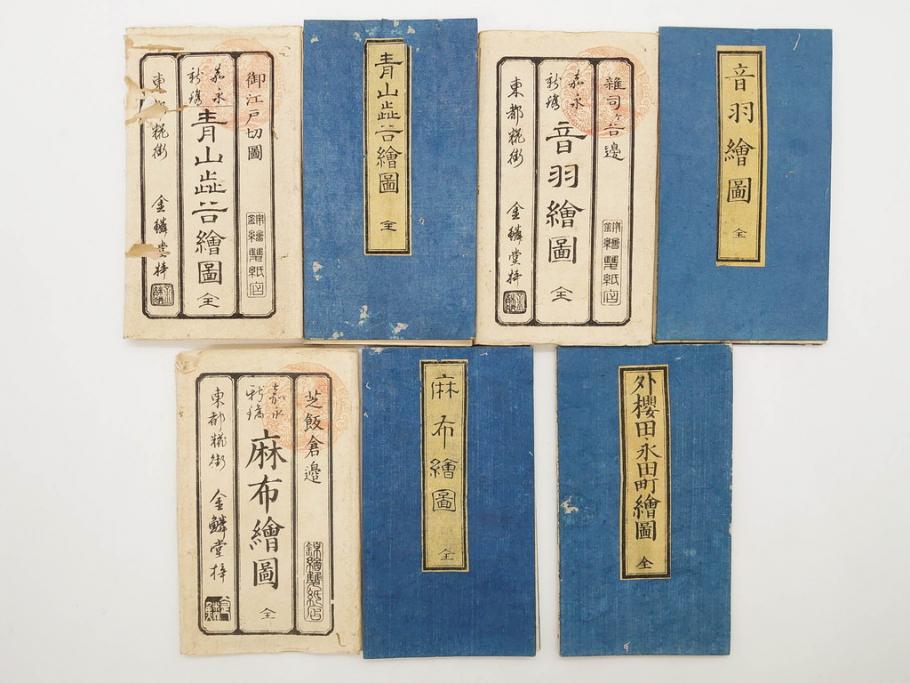 御江戸切圖
錦繪雙紙店
嘉永
新鐫
青山澁谷繪圖 全
東都糀街 金鱗堂梓
青山澁谷繪圖 全
雜司ヶ谷邊
錦繪雙紙店
嘉永
新鐫
音羽繪圖 全
東都糀街 金鱗堂梓
音羽繪圖 全
芝飯倉邊
錦繪雙紙店
嘉永
新鐫
麻布繪圖 全
東都糀街 金鱗堂梓
麻布繪圖 全
外櫻田永田町繪圖 全